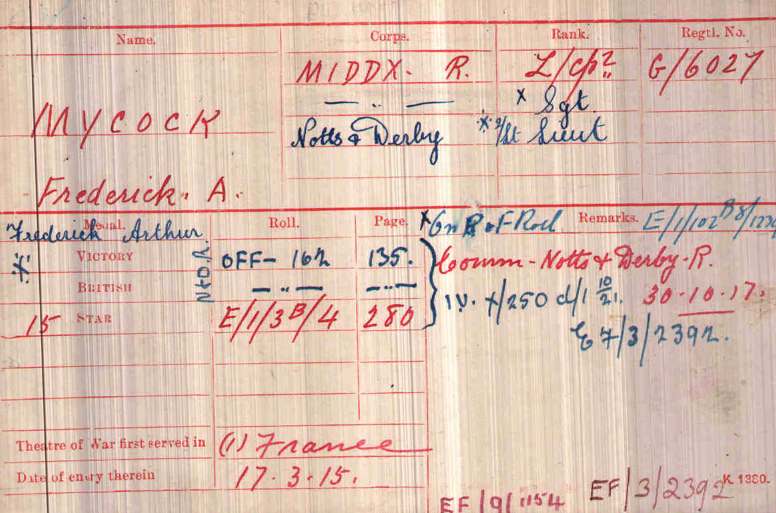 Name. Corps. Rank. Regtl. No.
MIDDX. R. L/Cpl G/6027
— „ — x Sgt
MYCOCK Notts & Derby Lieut
Frederick. A.
Medal. Roll. Page. Remarks. E/1/102
Frederick Arthur
VICTORY OFF- 162 135. Comm - Notts & Derby. R.
BRITISH — „ — — „ — IV. X/250 d/1 10/21. 30.10.17.
15 STAR E/1/3B/4 280 E7/3/2392.
Theatre of War first served in (1) France
Date of entry therein 17.3.15.
EF/9/1154 EF/3/2392 K 1380.